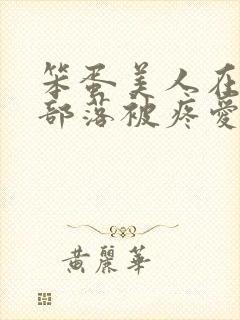 笨蛋美人在
部落被疼愛
黃麗華